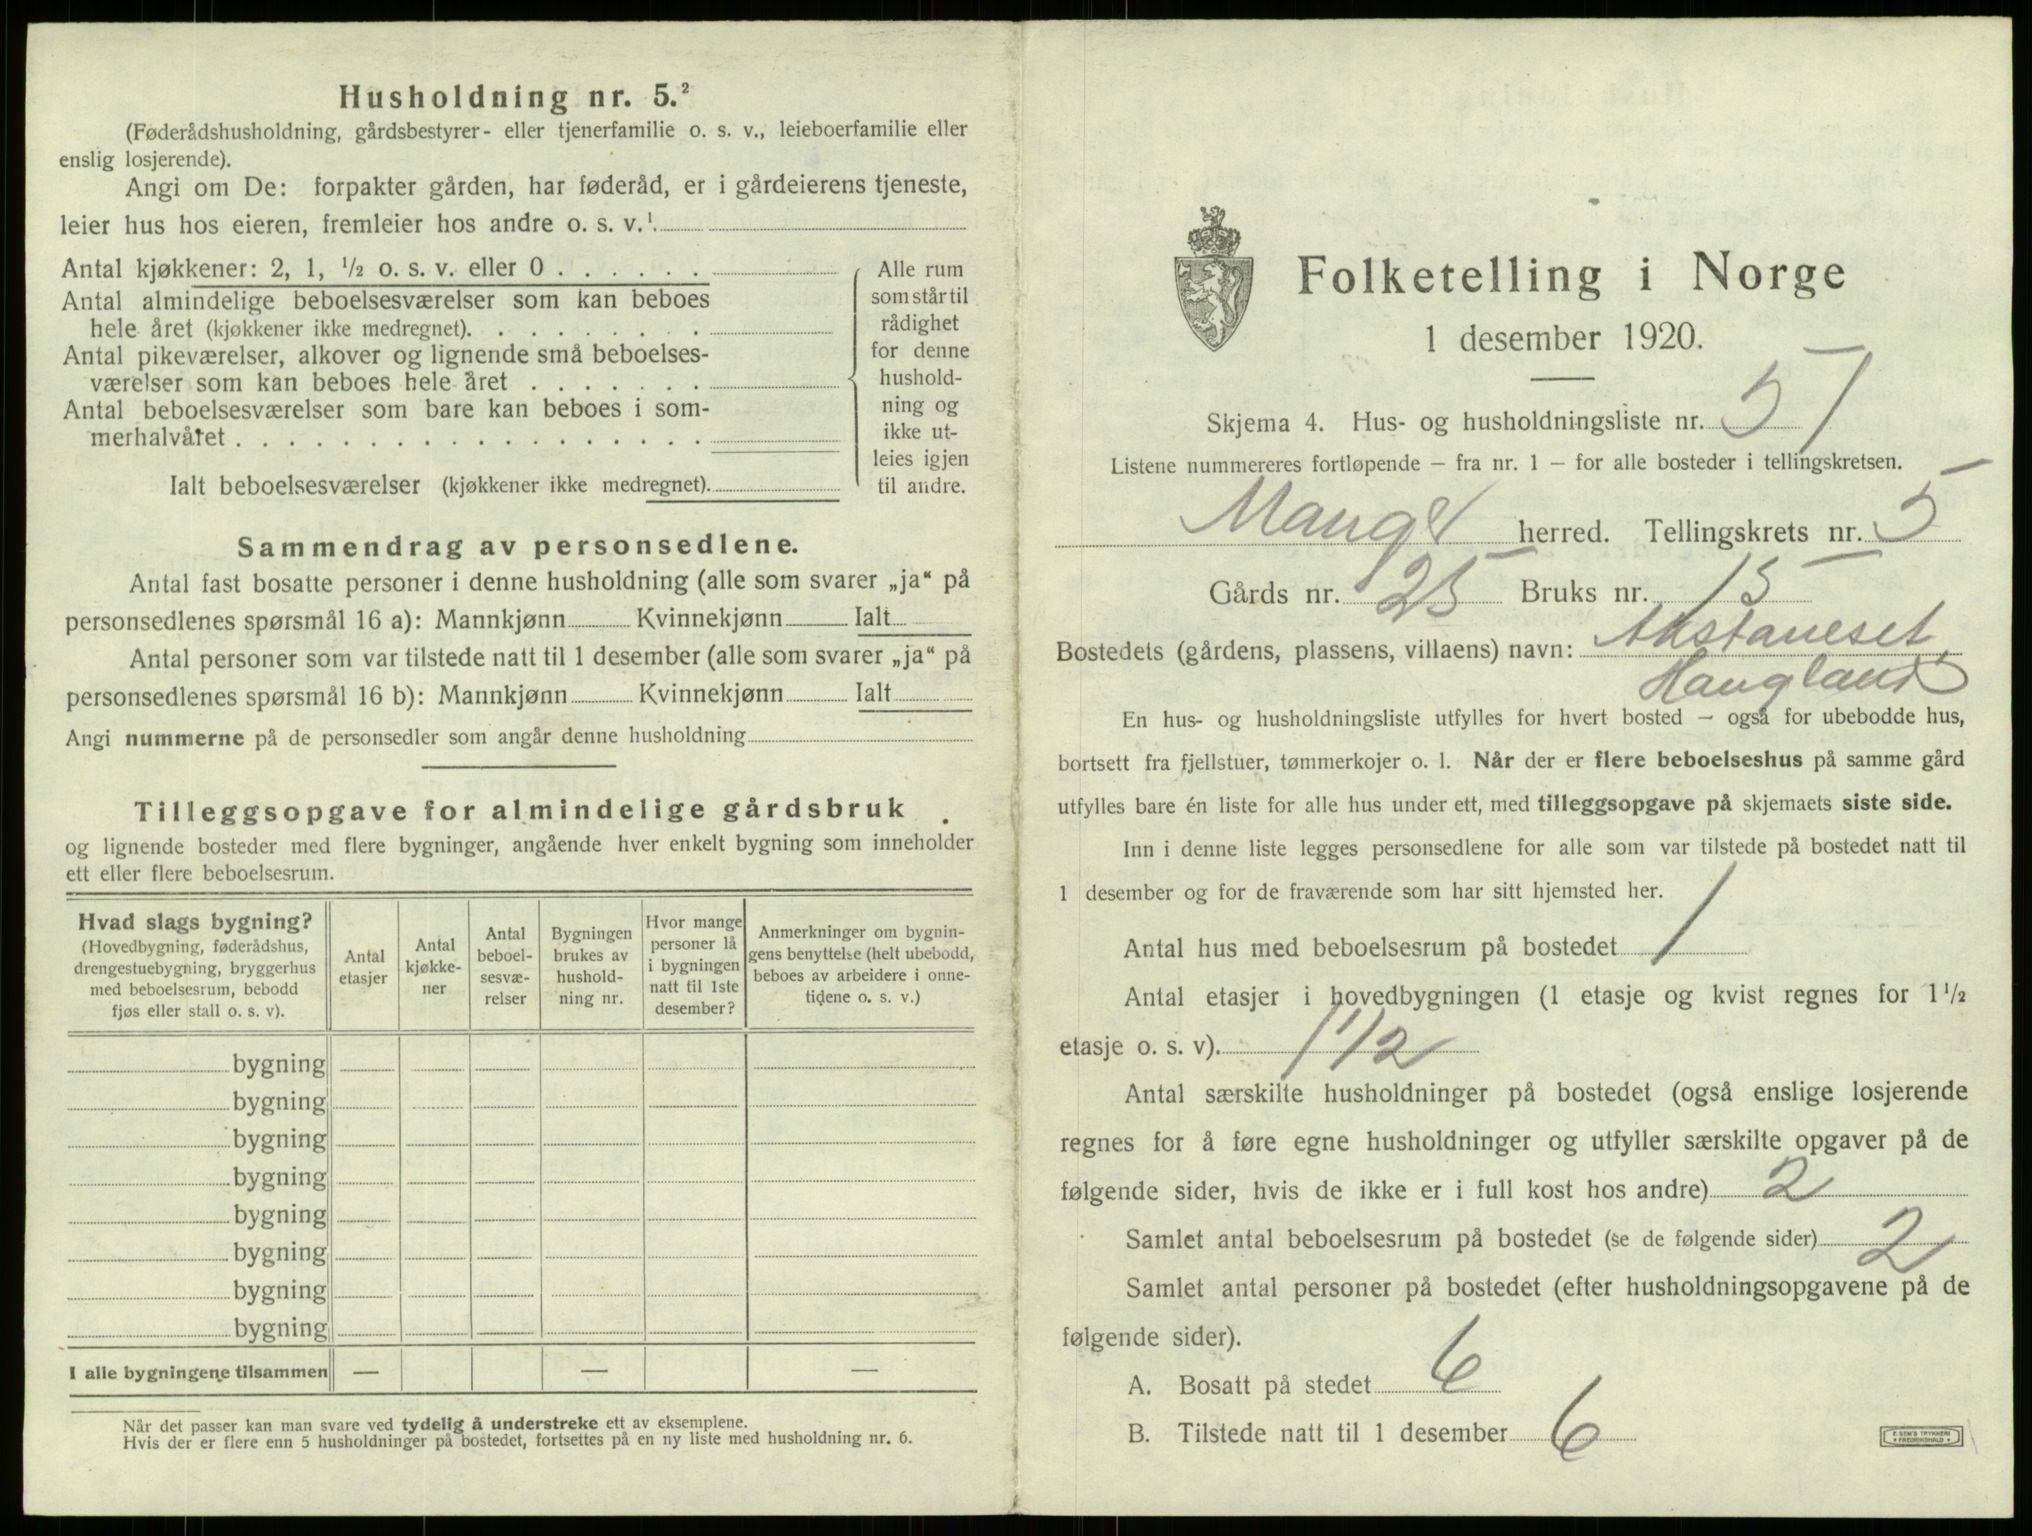 Husholdning nr. 5.²
(Føderådshusholdning, gårdsbestyrer- eller tjenerfamilie o. s. v., leieboerfamilie eller
enslig losjerende).
Angi om De: forpakter gården, har føderåd, er i gårdeierens tjeneste,
leier hus hos eieren, fremleier hos andre o. s. v.¹.
Antal kjøkkener: 2, 1, ½ o. s. v. eller 0 . . . . . .
Antal almindelige beboelsesværelser som kan beboes
hele året (kjøkkener ikke medregnet). . . . . . . . .
Antal pikeværelser, alkover og lignende små beboelses-
værelser som kan beboes hele året . . . . . . .
Antal beboelsesværelser som bare kan beboes i som-
merhalvåret . . . . . . . . . . . . . . . . . .
Ialt beboelsesværelser (kjøkkener ikke medregnet).
Alle rum
som står til
rådighet
for denne
hushold-
ning og
ikke ut-
leies igjen
til andre.
Sammendrag av personsedlene.
Antal fast bosatte personer i denne husholdning (alle som svarer „ja“ på
personsedlenes spørsmål 16 a): Mannkjønn Kvinnekjønn Ialt
Antal personer som var tilstede natt til 1 desember (alle som svarer „ja“ på
personsedlenes spørsmål 16 b): Mannkjønn Kvinnekjønn Ialt
Angi nummerne på de personsedler som angår denne husholdning
Tilleggsopgave for almindelige gårdsbruk
og lignende bosteder med flere bygninger, angående hver enkelt bygning som inneholder
ett eller flere beboelsesrum.
Hvad slags bygning?
(Hovedbygning, føderådshus,
drengestuebygning, bryggerhus
med beboelsesrum, bebodd
fjøs eller stall o. s. v).
Antal
etasjer
Antal
kjøkke-
ner
Antal
beboel-
sesvæ-
relser
Bygningen
brukes av
hushold-
ning nr.
Hvor mange
personer lå
i bygningen
natt til 1ste
desember?
Anmerkninger om bygnin-
gens benyttelse (helt ubebodd,
beboes av arbeidere i onne-
tidene o. s. v.)
bygning
bygning
bygning
bygning
bygning
bygning
bygning
bygning
I alle bygningene tilsammen — — —
Når det passer kan man svare ved tydelig å understreke ett av eksemplene.
Hvis der er flere enn 5 husholdninger på bostedet, fortsettes på en ny liste med husholdning nr. 6.
Folketelling i Norge
1 desember 1920.
Skjema 4. Hus- og husholdningsliste nr. 57
Listene nummereres fortløpende – fra nr. 1 – for alle bosteder i tellingskretsen.
Manger herred. Tellingskrets nr. 5
Gårds nr. 25 Bruks nr. 15
Bostedets (gårdens, plassens, villaens) navn:
Haugland
En hus- og husholdningsliste utfylles for hvert bosted – også for ubebodde hus,
bortsett fra fjellstuer, tømmerkojer o. l. Når der er flere beboelseshus på samme gård
utfylles bare én liste for alle hus under ett, med tilleggsopgave på skjemaets siste side.
Inn i denne liste legges personsedlene for alle som var tilstede på bostedet natt til
1 desember og for de fraværende som har sitt hjemsted her.
Antal hus med beboelsesrum på bostedet 1
Antal etasjer i hovedbygningen (1 etasje og kvist regnes for 1½
etasje o. s. v). 1 1/2
Antal særskilte husholdninger på bostedet (også enslige losjerende
regnes for å føre egne husholdninger og utfyller særskilte opgaver på de
følgende sider, hvis de ikke er i full kost hos andre) 2
Samlet antal beboelsesrum på bostedet (se de følgende sider) 2
Samlet antal personer på bostedet (efter husholdningsopgavene på de
følgende sider).
A. Bosatt på stedet 6
B. Tilstede natt til 1 desember 6
E. SEM'S TRYKKERI
FREDRIKSHALD